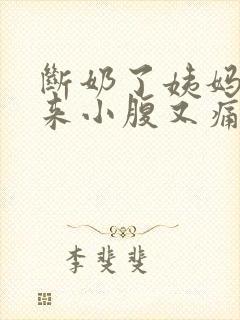 斷奶了姨妈
来小腹又痛
李斐斐